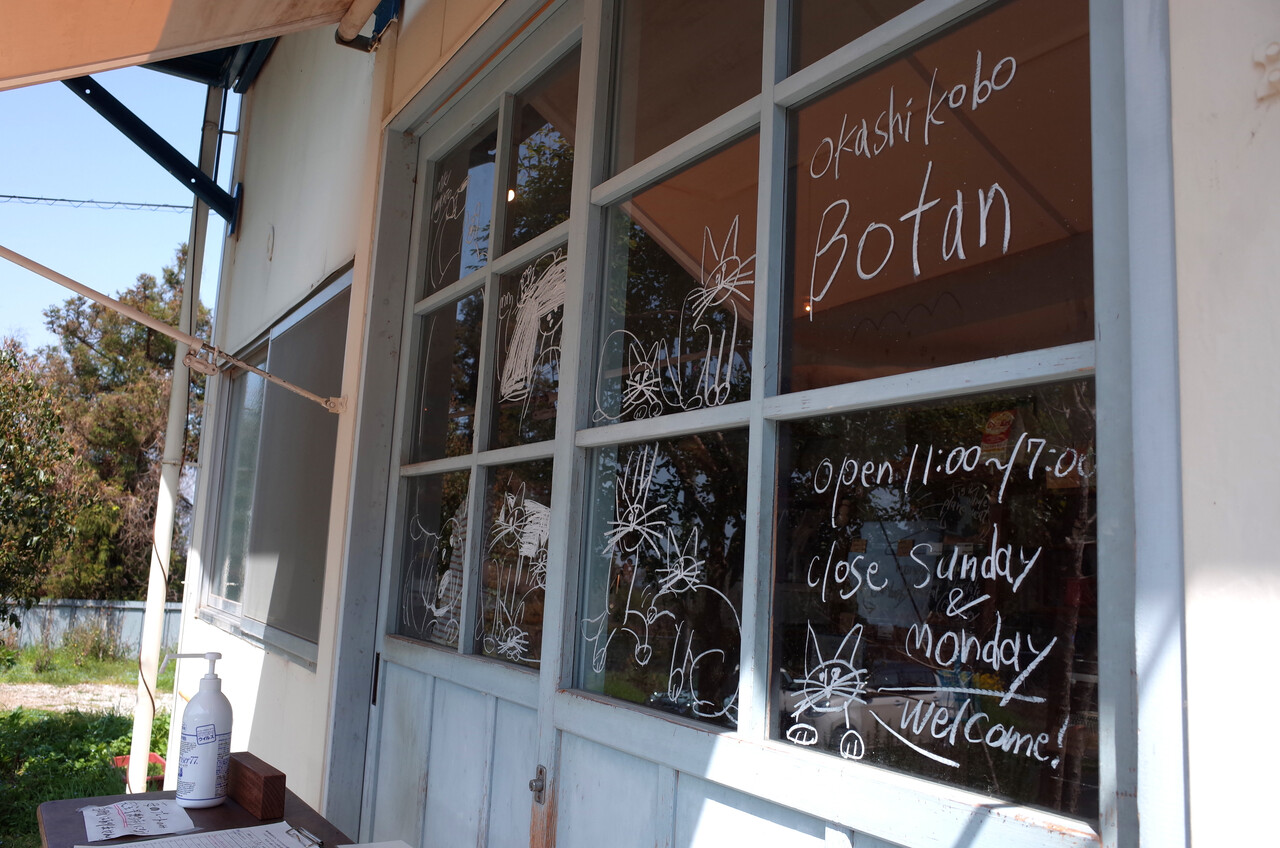 okashi kobo
Botan
open 11:00~17:00
close Sunday
&
Monday
welcome!
ウイルス